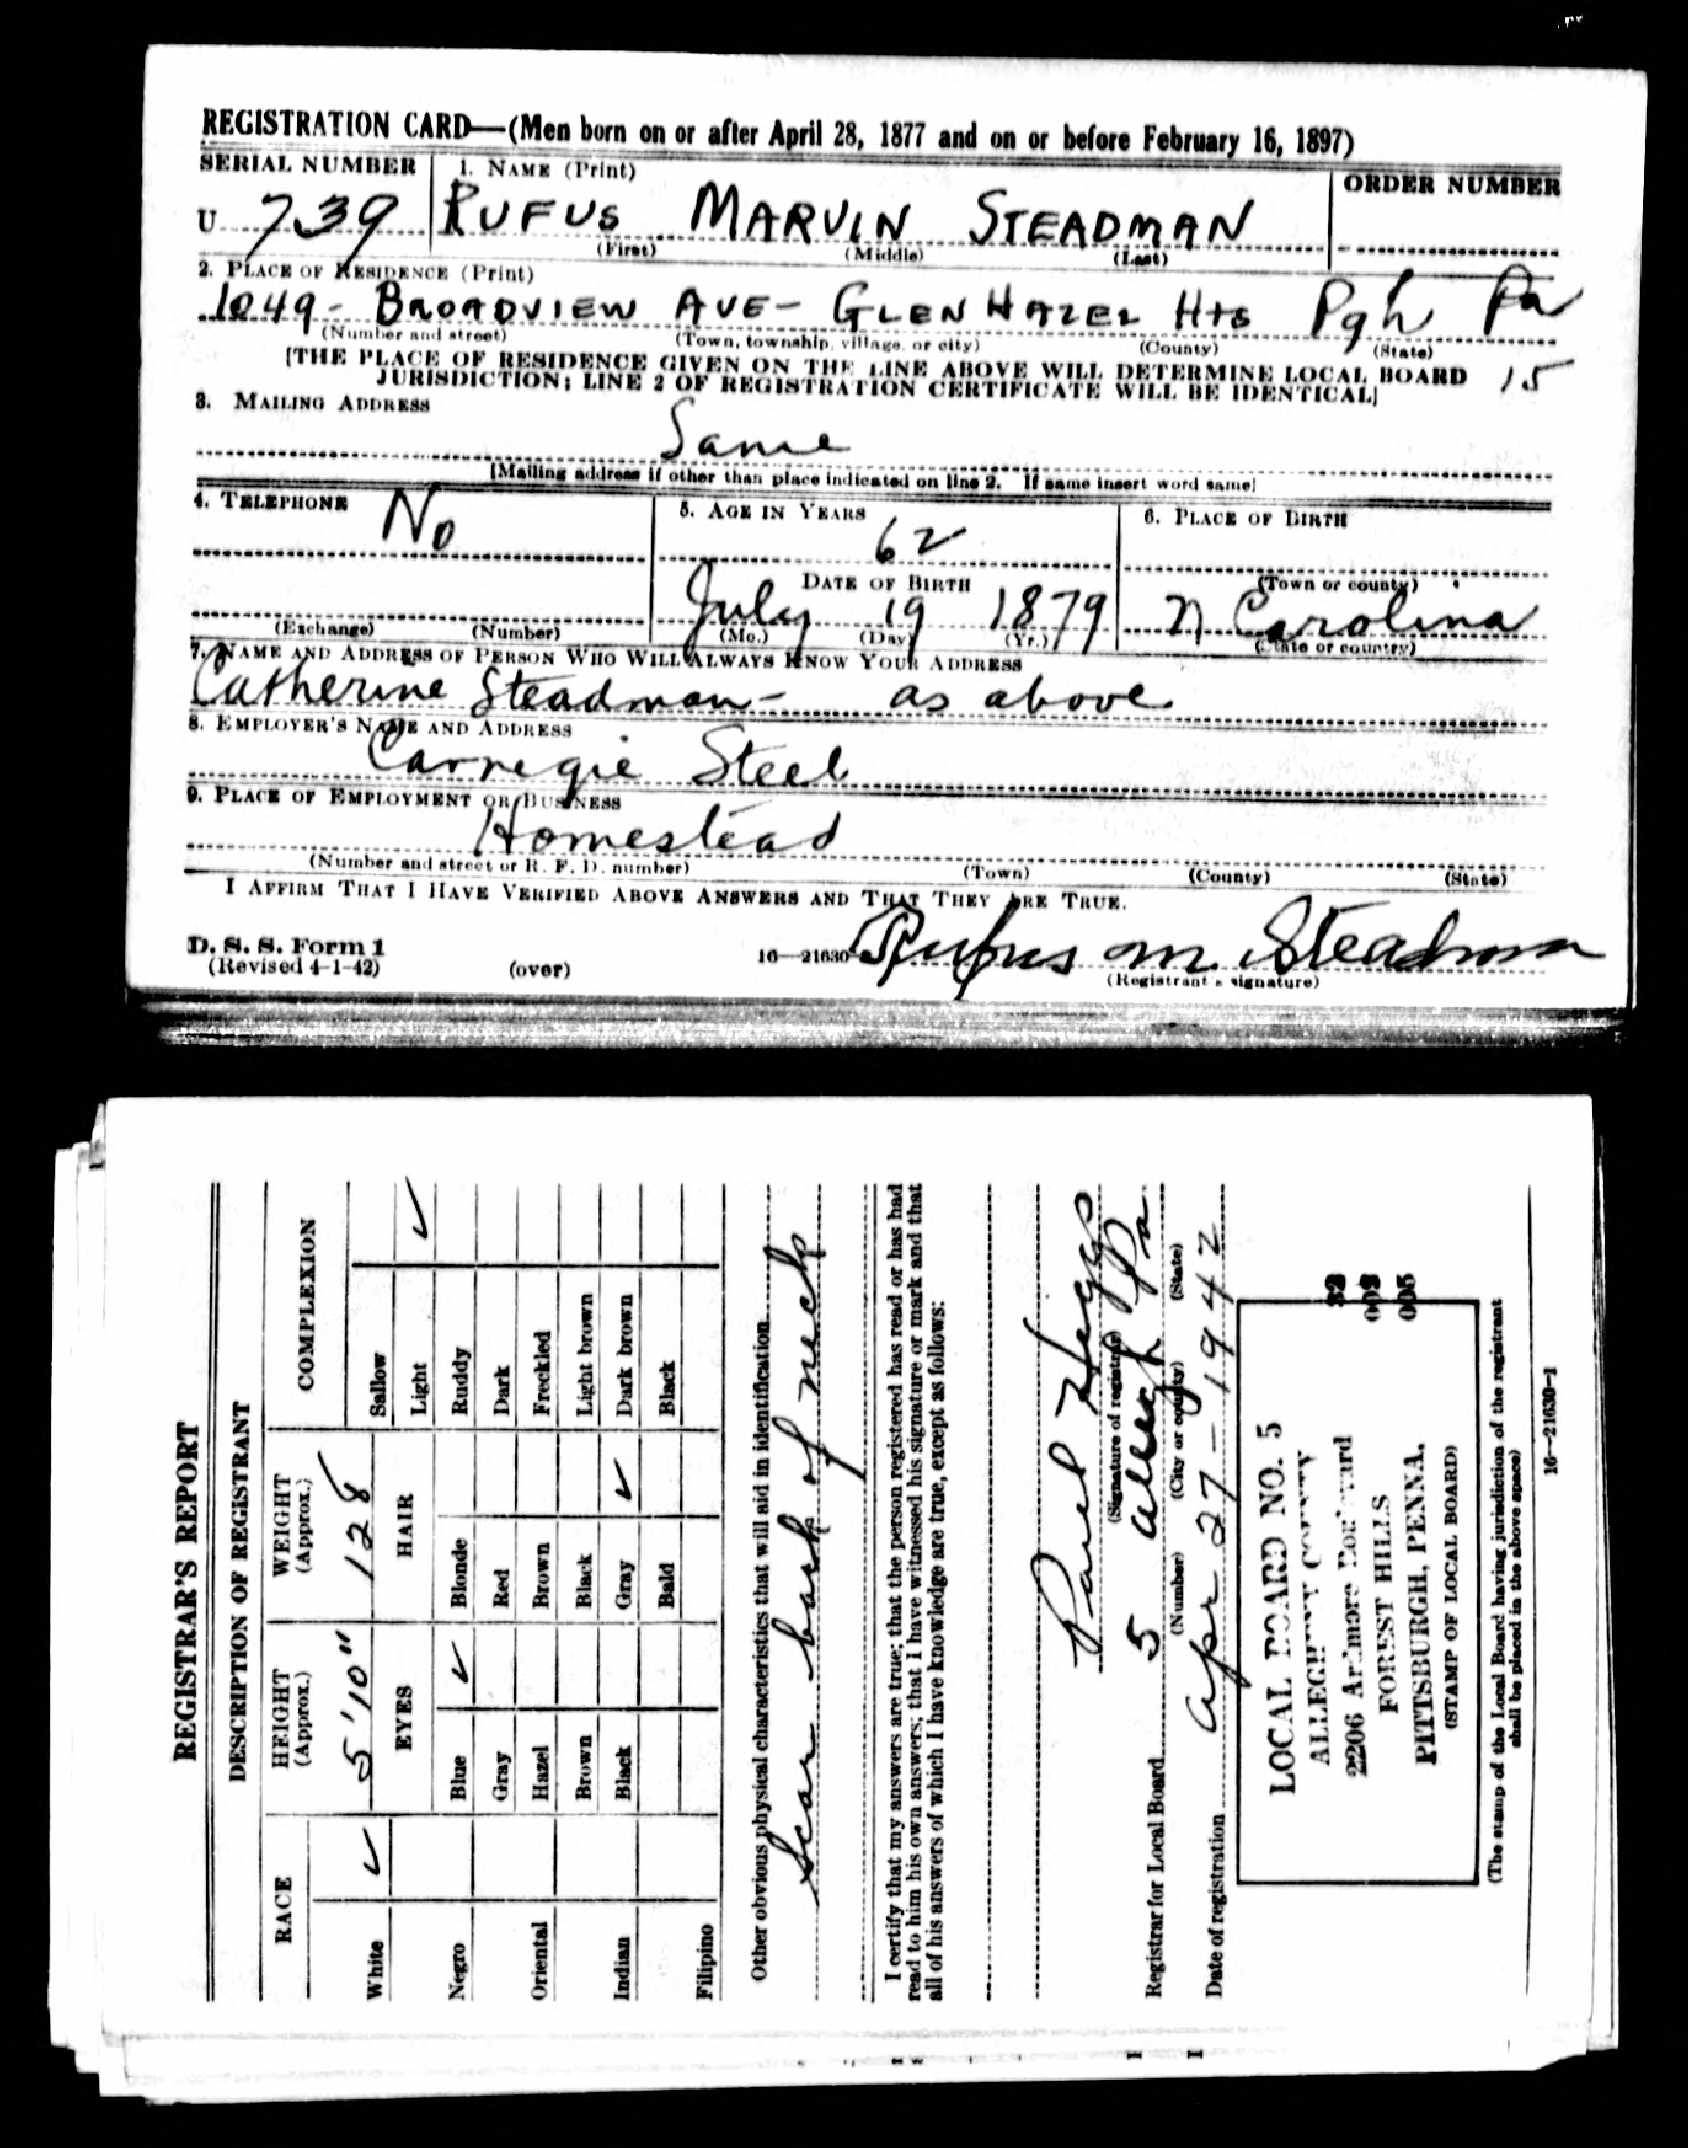 REGISTRATION CARD—(Men born on or after April 28, 1877 and on or before February 16, 1897)
SERIAL NUMBER
1. NAME (Print)
ORDER NUMBER
U 739
RUFUS MARVIN STEADMAN
(First) (Middle) (Last)
2. PLACE OF RESIDENCE (Print)
1049 - BROADVIEW AVE - GLEN HAZEL Hts Pgh Pa
(Number and street) (Town, township, village, or city) (County) (State)
[THE PLACE OF RESIDENCE GIVEN ON THE LINE ABOVE WILL DETERMINE LOCAL BOARD 15
JURISDICTION; LINE 2 OF REGISTRATION CERTIFICATE WILL BE IDENTICAL]
3. MAILING ADDRESS
Same
[Mailing address if other than place indicated on line 2. If same insert word same]
4. TELEPHONE
No
5. AGE IN YEARS
62
6. PLACE OF BIRTH
DATE OF BIRTH
(Town or county)
July 19 1879
N Carolina
(Exchange) (Number) (Mo.) (Day) (Yr.) (State or country)
7. NAME AND ADDRESS OF PERSON WHO WILL ALWAYS KNOW YOUR ADDRESS
Catherine Steadman - as above
8. EMPLOYER'S NAME AND ADDRESS
Carnegie Steel
9. PLACE OF EMPLOYMENT OR BUSINESS
Homestead
(Number and street or R. F. D. number) (Town) (County) (State)
I AFFIRM THAT I HAVE VERIFIED ABOVE ANSWERS AND THAT THEY ARE TRUE.
D. S. S. Form 1
(Revised 4-1-42) (over) 16—21630
Rufus M. Steadman
(Registrant's signature)
REGISTRAR'S REPORT
DESCRIPTION OF REGISTRANT
RACE
HEIGHT (Approx.)
WEIGHT (Approx.)
COMPLEXION
White ✓
5'10"
128
Sallow
EYES
HAIR
Light ✓
Negro
Blue ✓
Blonde
Ruddy
Gray
Red
Dark
Oriental
Hazel
Brown
Freckled
Brown
Black
Light brown
Indian
Black
Gray ✓
Dark brown
Bald
Black
Filipino
Other obvious physical characteristics that will aid in identification
Scar back of neck
I certify that my answers are true; that the person registered has read or has had
read to him his own answers; that I have witnessed his signature or mark and that
all of his answers of which I have knowledge are true, except as follows:
Paul Heggs
(Signature of registrar)
Registrar for Local Board 5 Allegh Pa
(Number) (City or county) (State)
Date of registration Apr 27 - 1942
32
003
005
LOCAL BOARD NO. 5
ALLEGHENY COUNTY
2206 Ardmore Boulevard
FOREST HILLS
PITTSBURGH, PENNA.
(STAMP OF LOCAL BOARD)
(The stamp of the Local Board having jurisdiction of the registrant
shall be placed in the above space)
16—21630-1